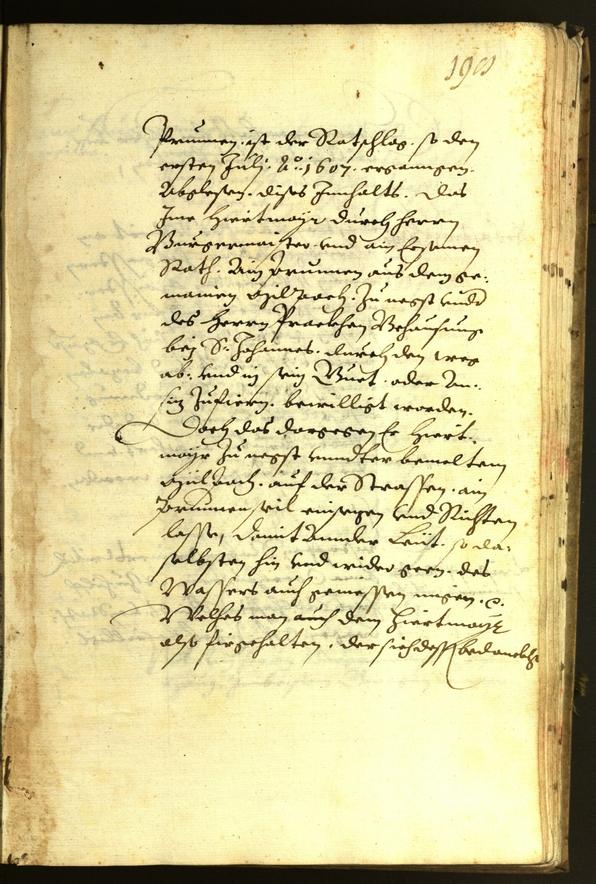 190
Prunnen. ist der Ratschlag. so den
ersten Julj. Aō. 1607. erganngen.
Abglesen. dises Innhalts. Das
Ime Hiertmayr durch herrn
Burgermaister vnd ain Ersamen
Rath. Ain prunnen aus dem ge-
mainen Zu negst vndter
des herrn Prackhen Behausung
bej S. Johannes. durch den weg
ab. vnd in sein Guet. oder An-
siz Zufieren. bewilligt worden.
Doch das dargegen Er Hiert-
mayr Zu negst vnndter bemeltem
auf der Strassen. ain
Prunnenseil einsezen vnd Richten
lasse, damit annder Leüt. so da-
selbsten hin vnd wider geen. des
Wassers auch geniessen mügen. &c.
Welhes man auch dem Hiertmayr
also firgehalten. der sich dess bedanckht